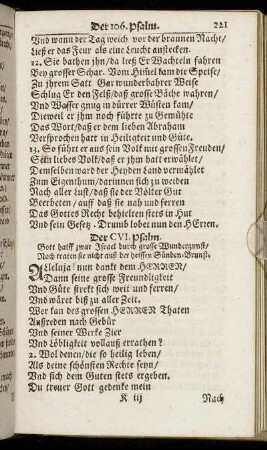 Der 106. Psalm. 221
Und wann der Tag weich vor der braunen Nacht/
Ließ er das Feur als eine Leucht anstecken.
12. Sie bathen ihn/da ließ Er Wachteln fahren
Bey grosser Schar. Vom Himel kam die Speise/
Zu jhrem Satt. Gar wunderbahrer Weise
Schlug Er den Fels/daß grosse Bäche wahren/
Und Wasser gnug in dürrer Wüsten kam/
Dieweil er jhm noch führte zu Gemühte
Das Wort/daß er dem lieben Abraham
Versprochen hatt in Heiligkeit und Güte.
13. So führt er aus sein Volk mit grossen Freuden/
Sein liebes Volk/daß er jhm hatt erwählet/
Demselben ward der Heyden Land vermählet
Zum Eigenthum/darinnen sich zu weiden
Nach aller lust/daß sie der Völker Gut
Beerbeten/auff daß sie nah und ferren
Das Gottes Recht behielten stets in Hut
Und sein Gesetz. Drumb lobet nun den HErrn.
Der CVI. Psalm.
Gott halff zwar Israel durch grosse Wundergunst/
Noch traten sie nicht aus der heissen Sünden-Brunst.
Alleluja! nun dankt dem HERREN/
Dann seine grosse Freundligkeit
Und Güte strekt sich weit und ferren/
Und wäret biß zu aller Zeit.
Wer kan des grossen HERREN Thaten
Außreden nach Gebür
Und seiner Werke Zier
Und Löbligkeit vollauß errathen?
2. Wol denen/die so heilig leben/
Als deine schönsten Rechte seyn/
Und sich dem Guten stets ergeben.
Du treuer Gott gedenke mein
K iij Nach